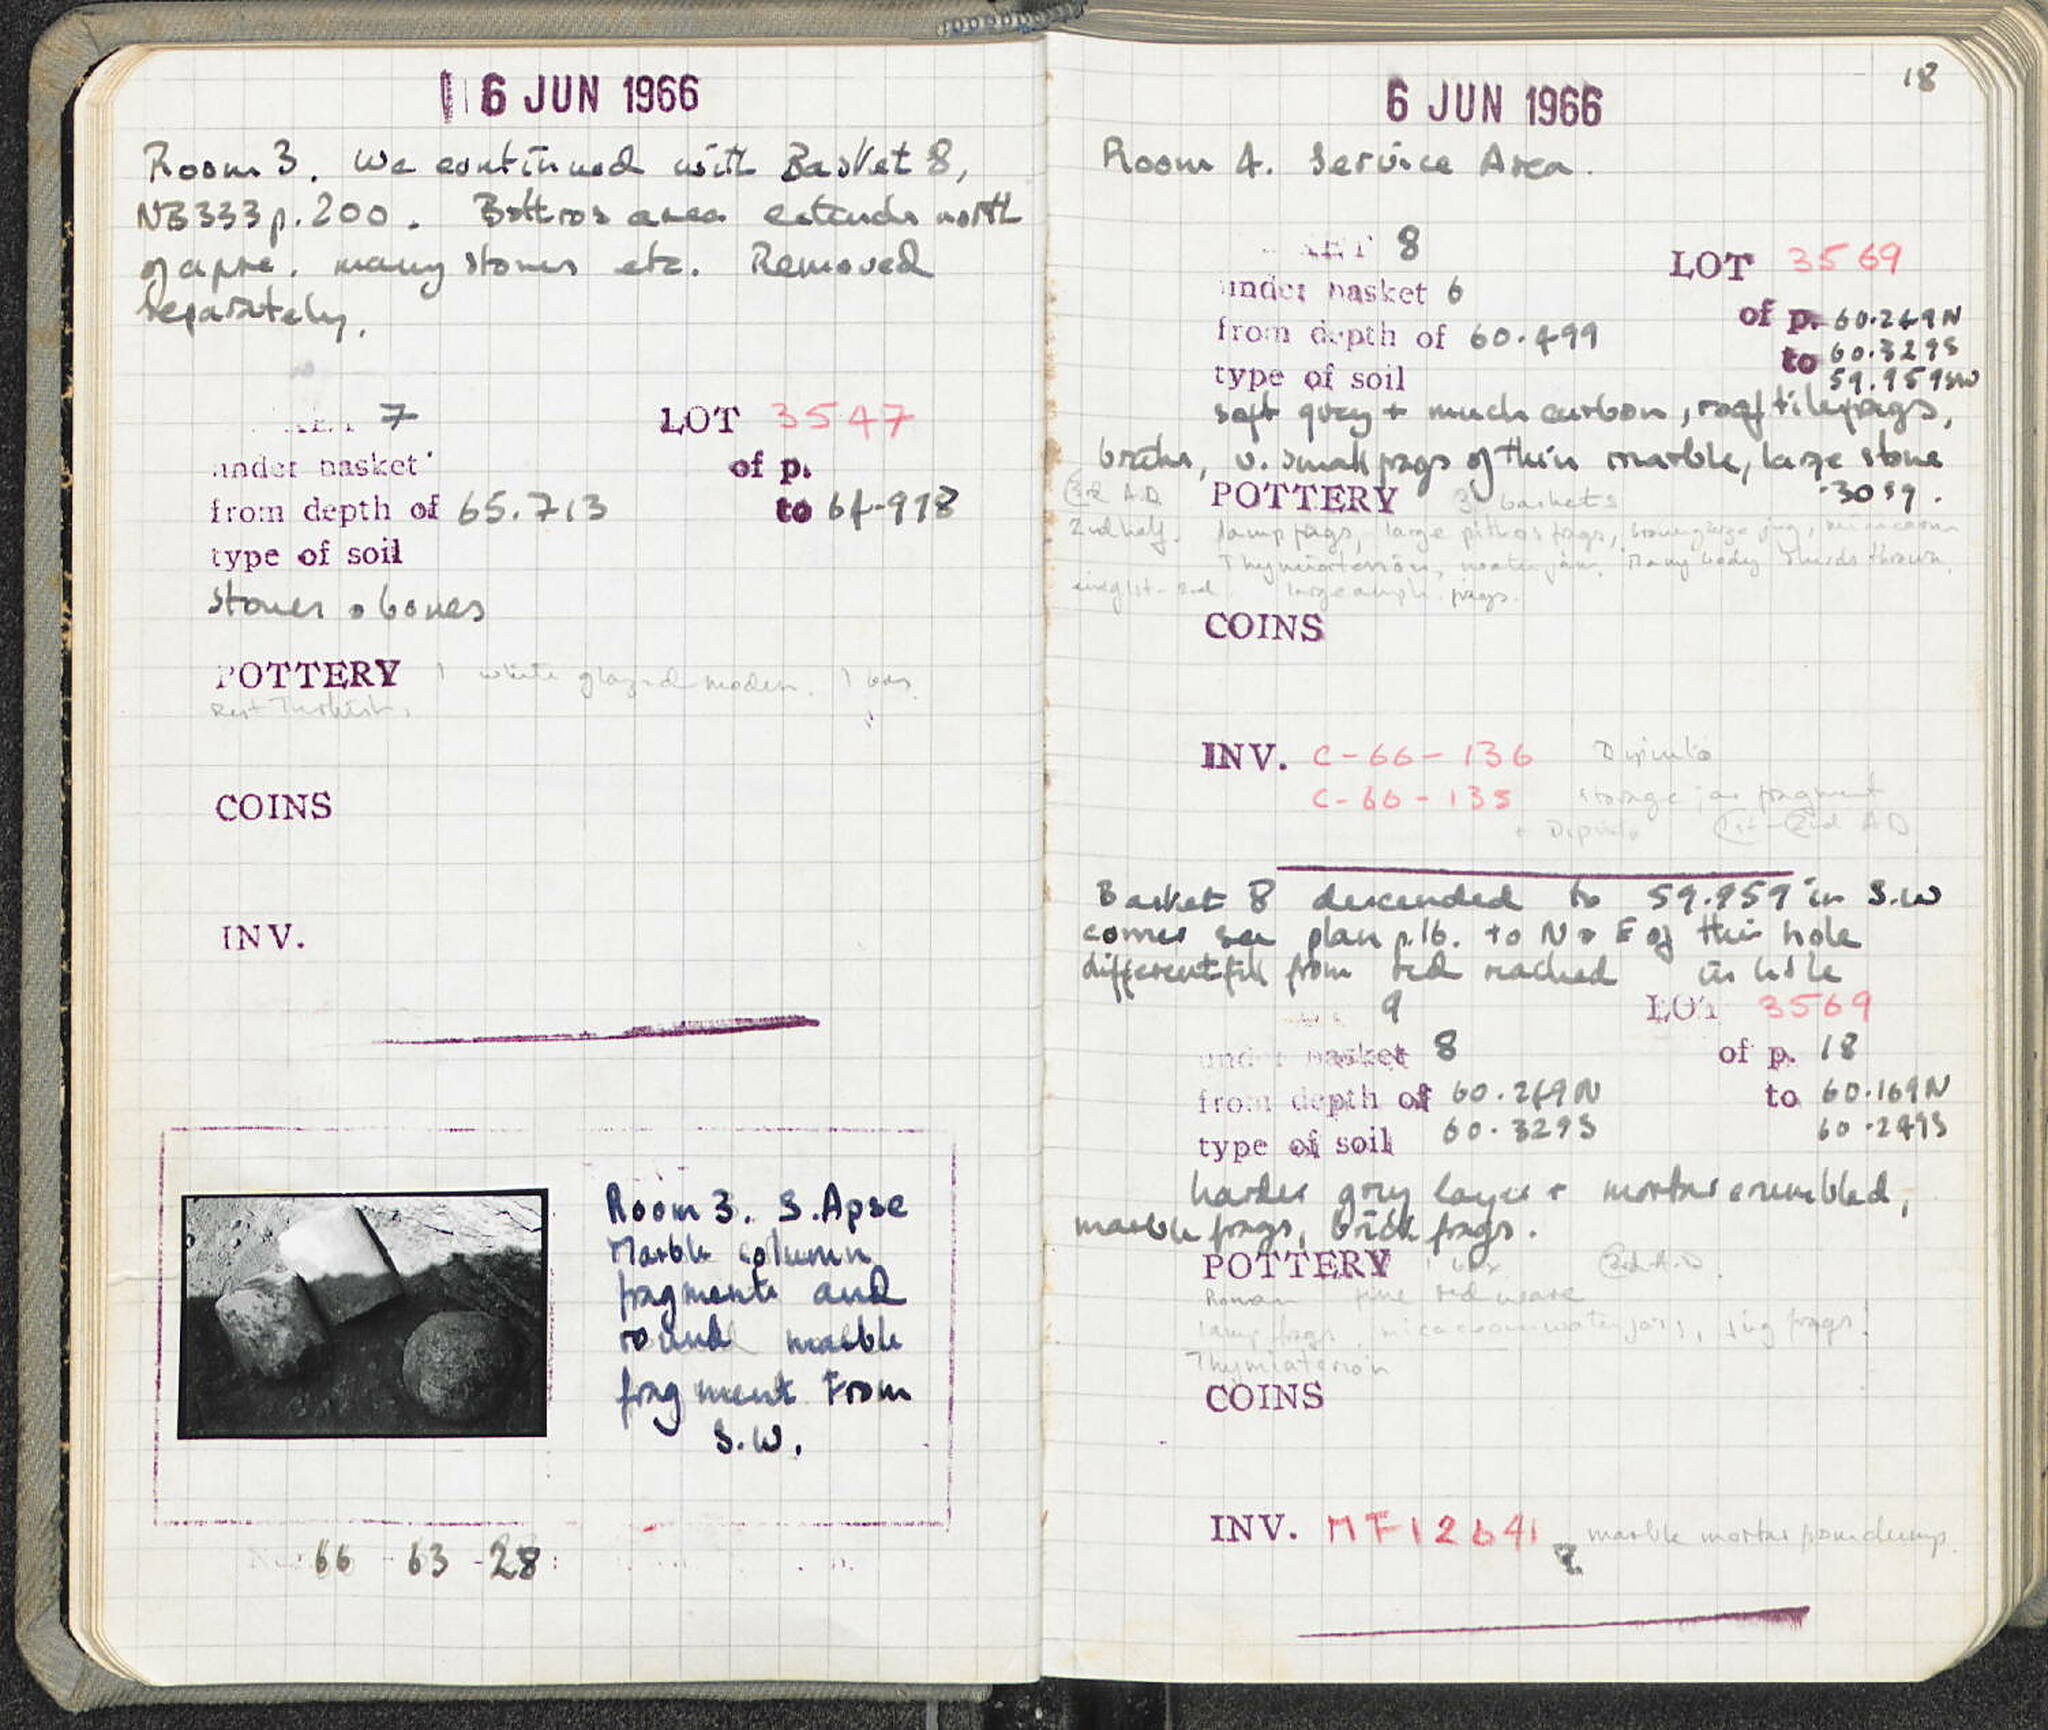 6 JUN 1966
Room 3. We continued with Basket 8,
NB333 p. 200. Bothros area extends north
of apse. many stones etc. Removed
separately.
7 LOT 3547
under basket of p.
from depth of 65.713 to 64.918
type of soil
stones & bones
POTTERY 1 white glazed modern. 1 box
Rest Turkish.
COINS
INV.
Room 3. S. Apse
Marble column
fragments and
round marble
fragment From
S.W.
66 - 63 - 28
18
6 JUN 1966
Room 4. Service Area.
8 LOT 3569
under basket 6 of p. 60.249N
from depth of 60.499 to 60.329S
type of soil 59.959SW
soft grey + much carbon, roof tile frags,
bricks, v. small frags of thin marble, large stone
POTTERY 3 baskets .3059.
2nd half. lamp frags, large pithos frags,
Thymiaterion, water jar. Many body sherds thrown.
large amph. frags.
COINS
INV. C-66-136 Dipinto
C-66-135 storage jar fragment
+ Dipinto 1st-2nd AD
Basket 8 descended to 59.959 in S.W
corner see plan p.16. to N & E of this hole
different fill from red reached in hole
9 LOT 3569
under basket 8 of p. 18
from depth of 60.249N to 60.169N
type of soil 60.329S 60.249S
harder grey layer + mortar crumbled,
marble frags, brick frags.
POTTERY 1 box 2nd A.D.
Roman fine red ware
lamp frags, micaceous water jars, jug frags.
Thymiaterion
COINS
INV. MF12641 marble mortar from dump.